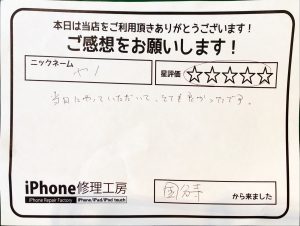 本日は当店をご利用頂きありがとうございます!
ご感想をお願いします!
ニックネーム
星評価 ☆☆☆☆☆
当日にやっていただいて、とても良かったです。
iPhone修理工房
iPhone Repair Factory
iPhone/iPad/iPod touch
国分寺
から来ました